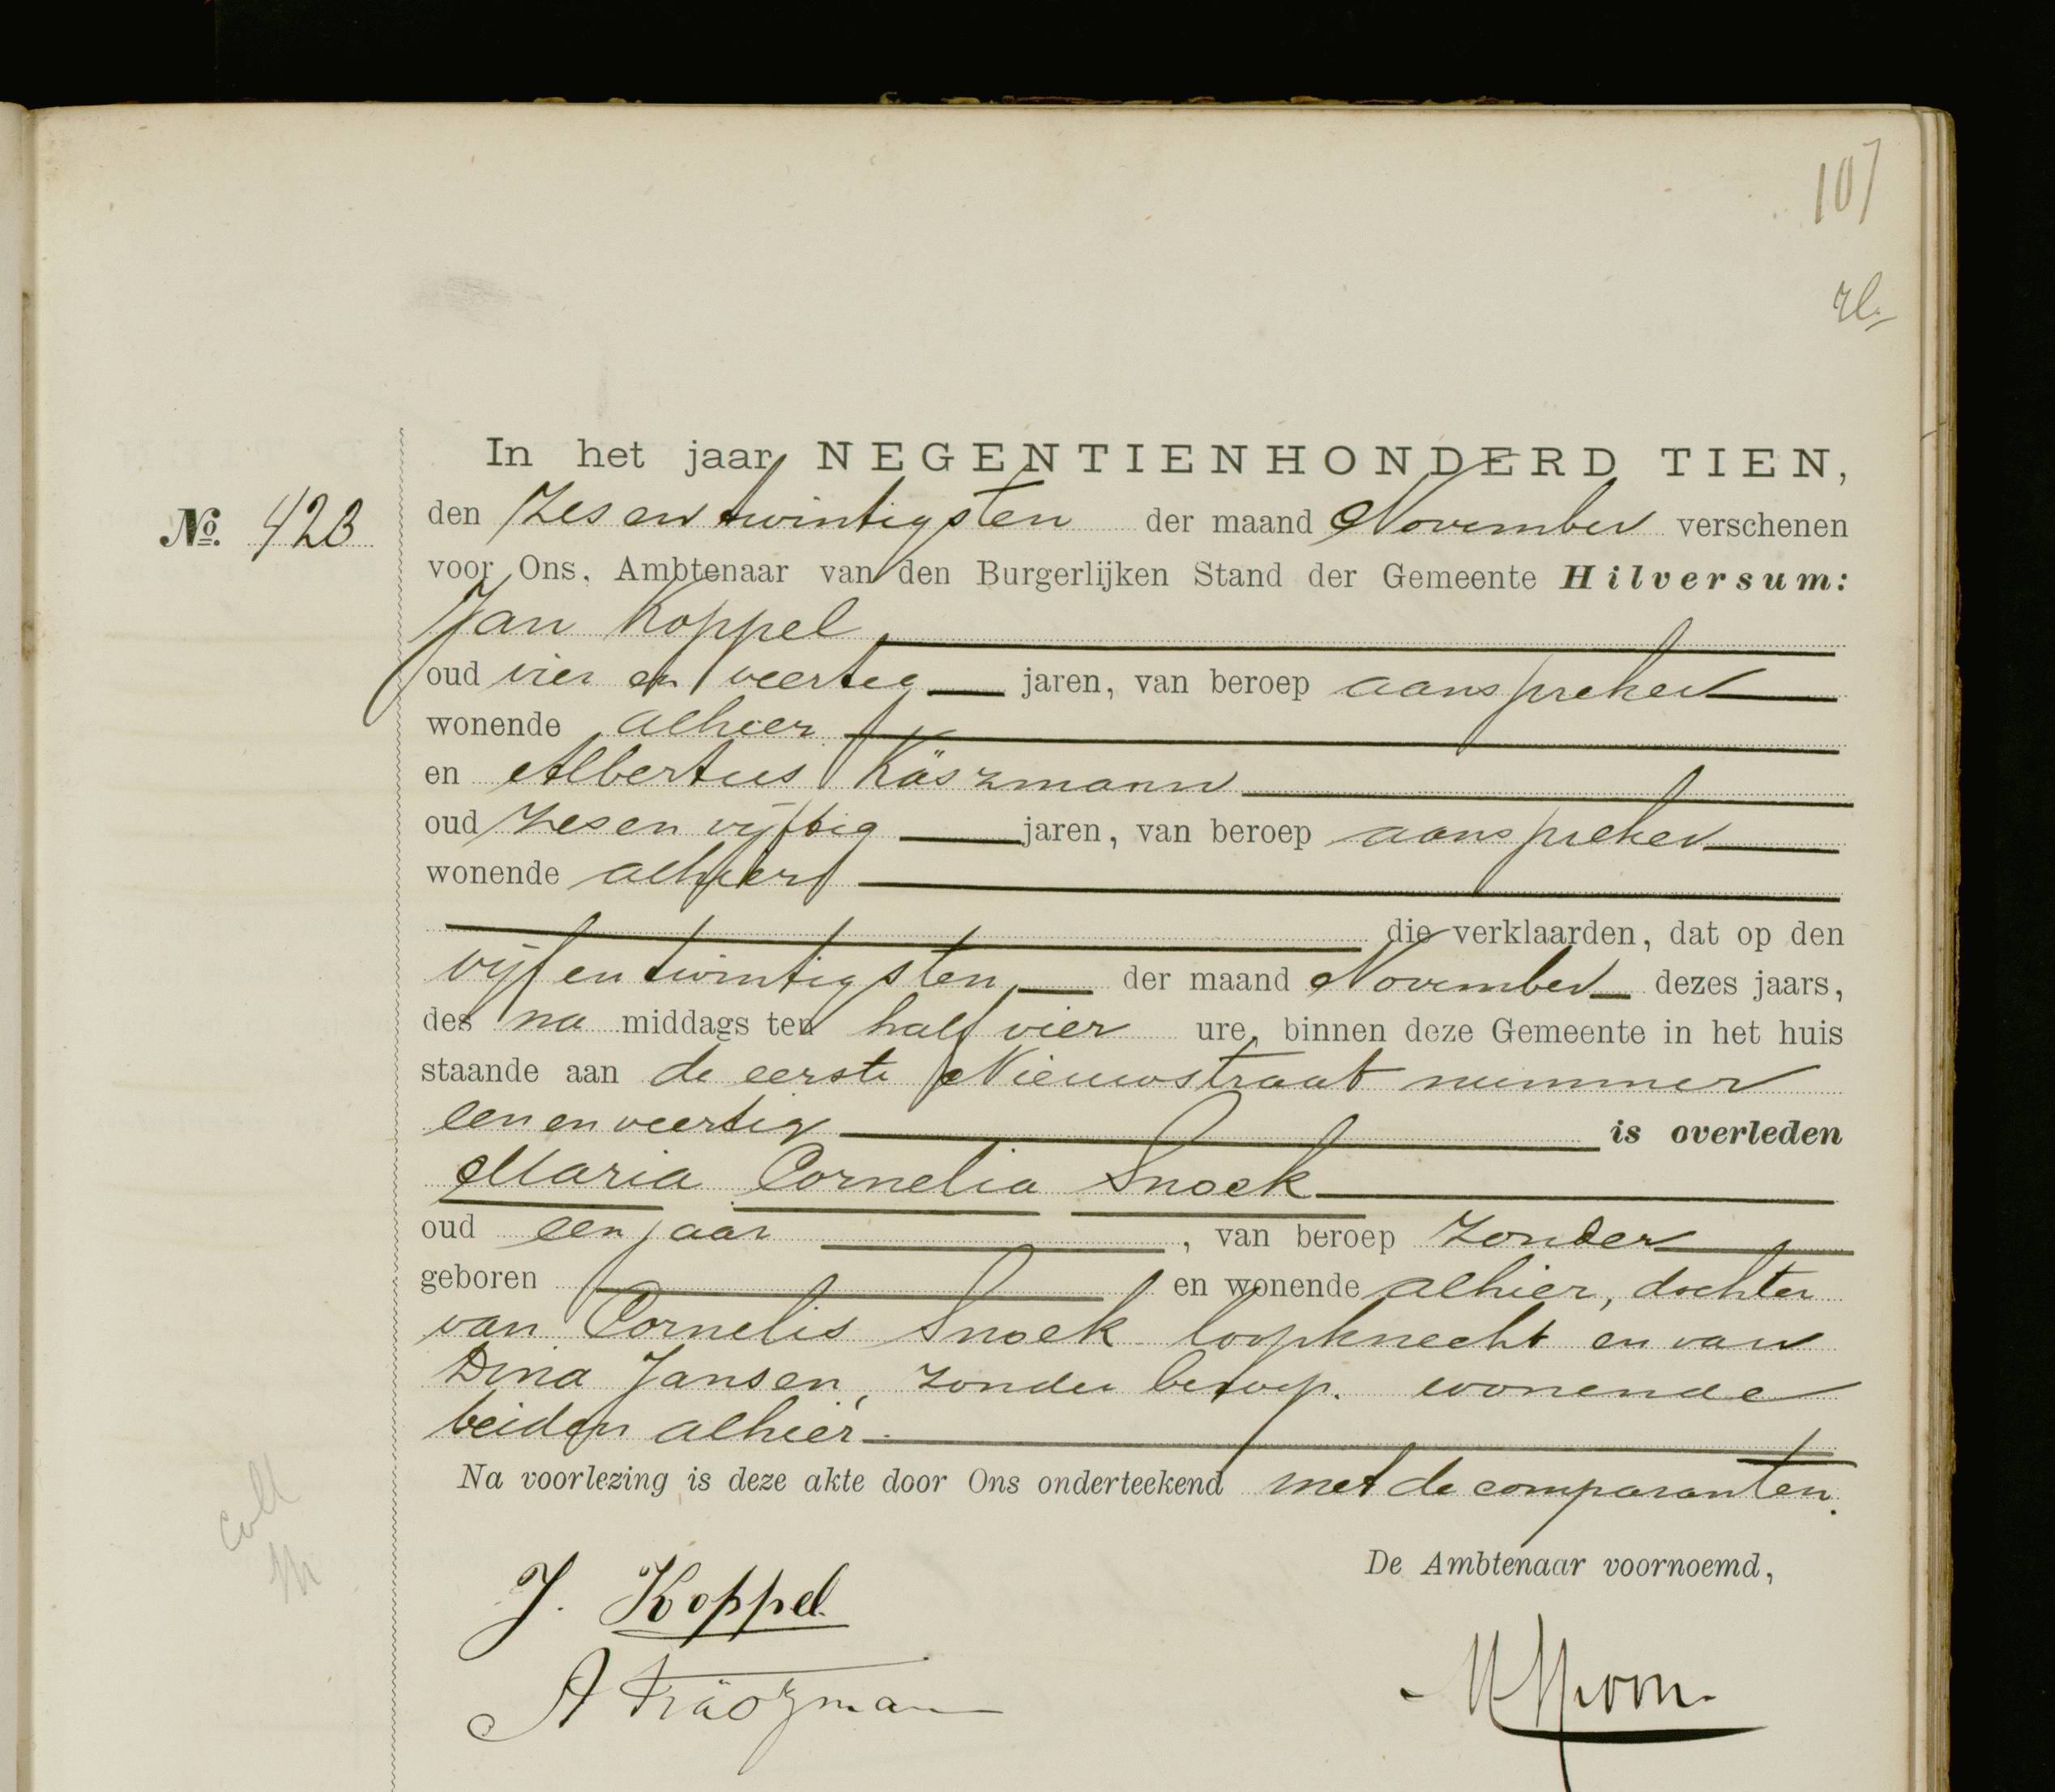 107
In het jaar NEGENTIENHONDERD TIEN,
No. 423 den Zes en twintigsten der maand November verschenen
voor Ons, Ambtenaar van den Burgerlijken Stand der Gemeente Hilversum:
Jan Koppel
oud vier en veertig jaren, van beroep aanspreker
wonende alhier
en Albertus Käszmann
oud Zes en vijftig jaren, van beroep aanspreker
wonende alhier
die verklaarden, dat op den
vijf en twintigsten der maand November dezes jaars,
des na middags ten half vier ure, binnen deze Gemeente in het huis
staande aan de eerste Nieuwstraat nummer
een en veertig is overleden
Maria Cornelia Snoek
oud een jaar, van beroep zonder
geboren en wonende alhier, dochter
van Cornelis Snoek loopknecht en van
Dina Jansen, zonder beroep. wonende
beiden alhier.
Na voorlezing is deze akte door Ons onderteekend met de comparanten.
De Ambtenaar voornoemd,
J. Koppel
A Käszman